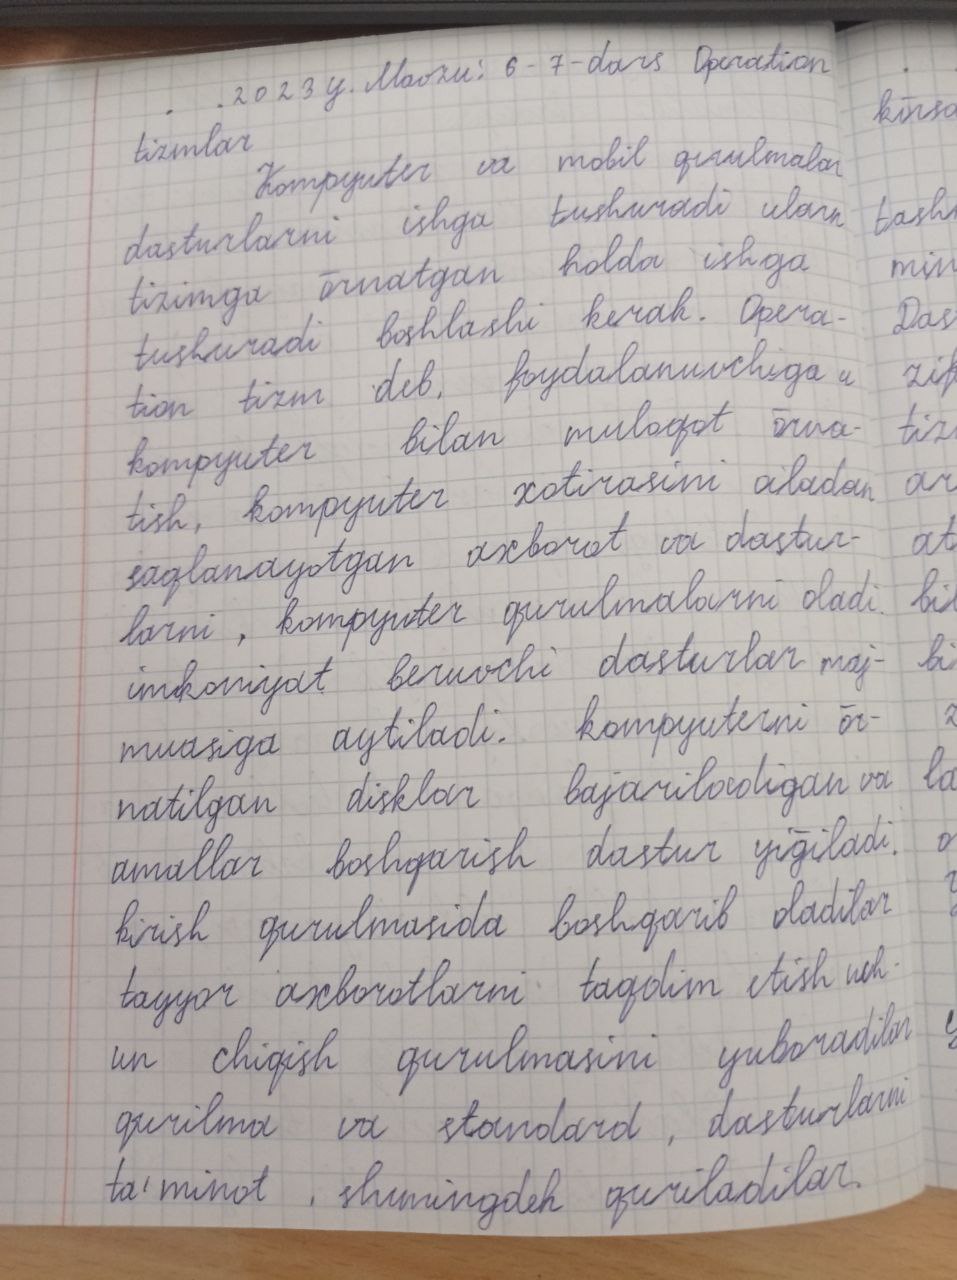 . .2023 y. Mavzu: 6-7-dars Operation
tizmlar
Kompyuter va mobil qurulmalar
dasturlarni ishga tushuradi ularn
tizimga ōrnatgan holda ishga
tushuradi boshlashi kerak. Opera-
tion tizm deb, foydalanuvchiga u
kompyuter bilan muloqot ōrna-
tish, kompyuter xotirasini aladan
saqlanayotgan axborot va dastur-
larni, kompyuter qurulmalarni oladi.
imkoniyat beruvchi dasturlar maj-
muasiga aytiladi. kompyuterni ōr-
natilgan disklar bajariladigan va
amallar boshqarish dastur yiḡiladi.
kirish qurulmasida boshqarib oladilar
tayyor axborotlarni taqdim etish uch-
un chiqish qurulmasini yuboradilar
qurilma va standard, dasturlarni
ta'minot, shuningdek quriladilar.
kōrsa
tash
min
Das
zif
tiz
ar
at
bil
bi
z
la